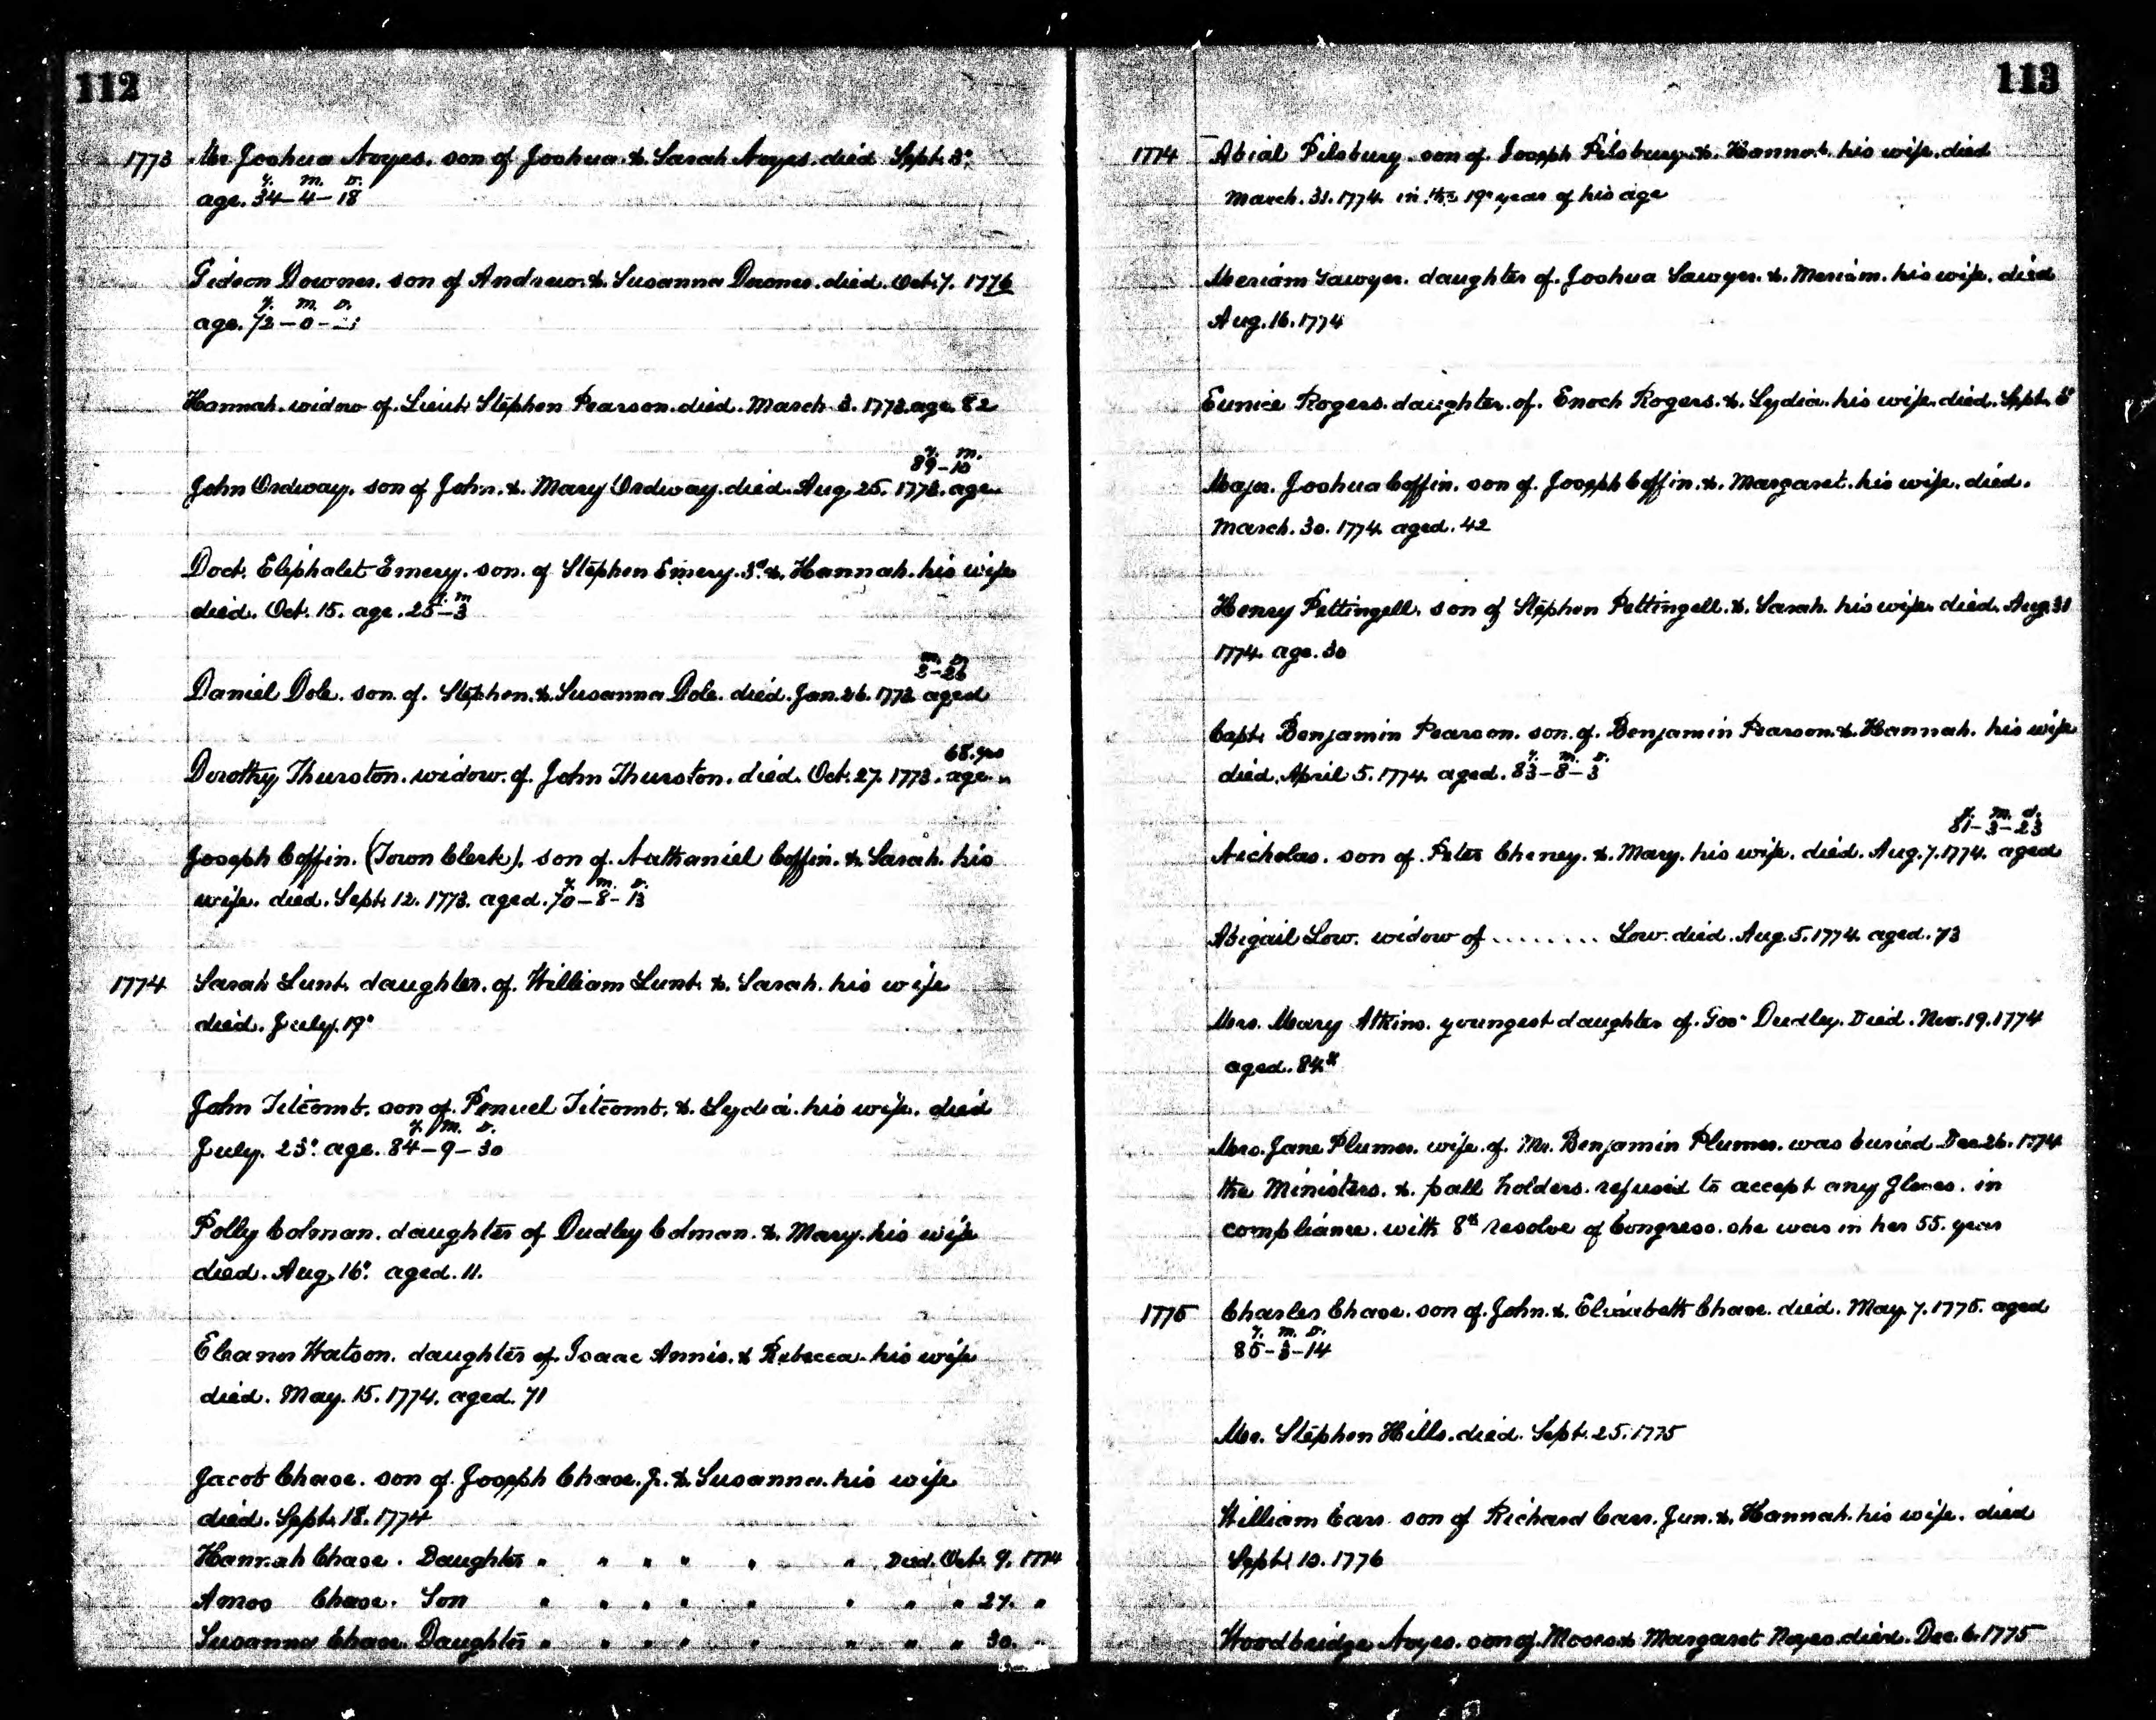 112
1773 Mr. Joshua Noyes. son of Joshua. & Sarah Noyes. died Sept. 3d
y. m. D.
age. 34–4–18
Gideon Downer. son of Andrew. & Susanna Downer. died. Oct. 7. 1776
y. m. D.
age. 72–0–
Hannah. widow of. Lieut. Stephen Pearson. died. March 3. 1773. age. 82
y. m.
89–10
John Ordway. son of John. & Mary Ordway. died. Aug. 25. 1773. age
Doct. Eliphalet Emery. son. of Stephen Emery. 3d. &. Hannah. his wife
y. m
died. Oct. 15. age. 25–3
m. D
3–26
Daniel Dole. son. of. Stephen. & Susanna Dole. died. Jan. 26. 1773 aged
68. yrs
Dorothy Thurston. widow. of. John Thurston. died. Oct. 27. 1773. age "
Joseph Coffin. (Town Clerk). son of. Nathaniel Coffin. & Sarah. his
y. m. D.
wife. died. Sept. 12. 1773. aged. 70–8–13
1774 Sarah Lunt. daughter. of. William Lunt. &. Sarah. his wife
died. July. 19d
John Titcomb. son of. Penuel Titcomb. &. Lydia. his wife. died
y. m. D.
July. 23d. age. 84–9–30
Polly Colman. daughter of Dudley Colman. &. Mary. his wife
died. Aug. 16d. aged. 11.
Eleanor Watson. daughter of. Isaac Annis. & Rebecca. his wife
died. May. 15. 1774. aged. 71
Jacob Chase. son of. Joseph Chase. Jr. & Susanna. his wife
died. Sept. 18. 1774
Hannah Chase. Daughter " " " " " " Died. Oct. 9. 1774
Amos Chase. Son " " " " " " " " 27. "
Susanna Chase. Daughter " " " " " " " " 30. "
113
1774 Abial Pilsbury. son of. Joseph Pilsbury. &. Hannah. his wife. died
March. 31. 1774. in the 19d year of his age
Meriam Sawyer. daughter of. Joshua Sawyer. &. Meriam. his wife. died
Aug. 16. 1774
Eunice Rogers. daughter. of. Enoch Rogers. &. Lydia. his wife. died. Sept.
Major. Joshua Coffin. son of. Joseph Coffin. &. Margaret. his wife. died.
March. 30. 1774. aged. 42
Henry Pettingell. son of Stephen Pettingell. &. Sarah. his wife. died. Aug. 31
1774. age. 30
Capt. Benjamin Pearson. son. of. Benjamin Pearson. &. Hannah. his wife
y. m. D.
died. April 5. 1774. aged. 83–8–3
y. m. d.
81–3–23
Nicholas. son of. Peter Cheney. &. Mary. his wife. died. Aug. 7. 1774. aged
Abigail Low. widow of ........ Low. died. Aug. 5. 1774. aged. 73
Mrs. Mary Atkins. youngest daughter of. Gov. Dudley. Died. Nov. 19. 1774
aged. 84.y
Mrs. Jane Plumer. wife. of. Mr. Benjamin Plumer. was buried. Dec. 26. 1774
the Ministers. &. pall holders. refused to accept any gloves. in
compliance. with 8th resolve of Congress. she was in her 55. year
1775 Charles Chase. son of. John. &. Elizabeth Chase. died. May. 7. 1775. aged
y. m. D.
85–3–14
Mr. Stephen Hills. died. Sept. 25. 1775
William Carr son of Richard Carr. Jun. &. Hannah. his wife. died
Sept. 10. 1776
Woodbridge Noyes. son of. Moses. & Margaret Noyes. died. Dec. 6. 1775